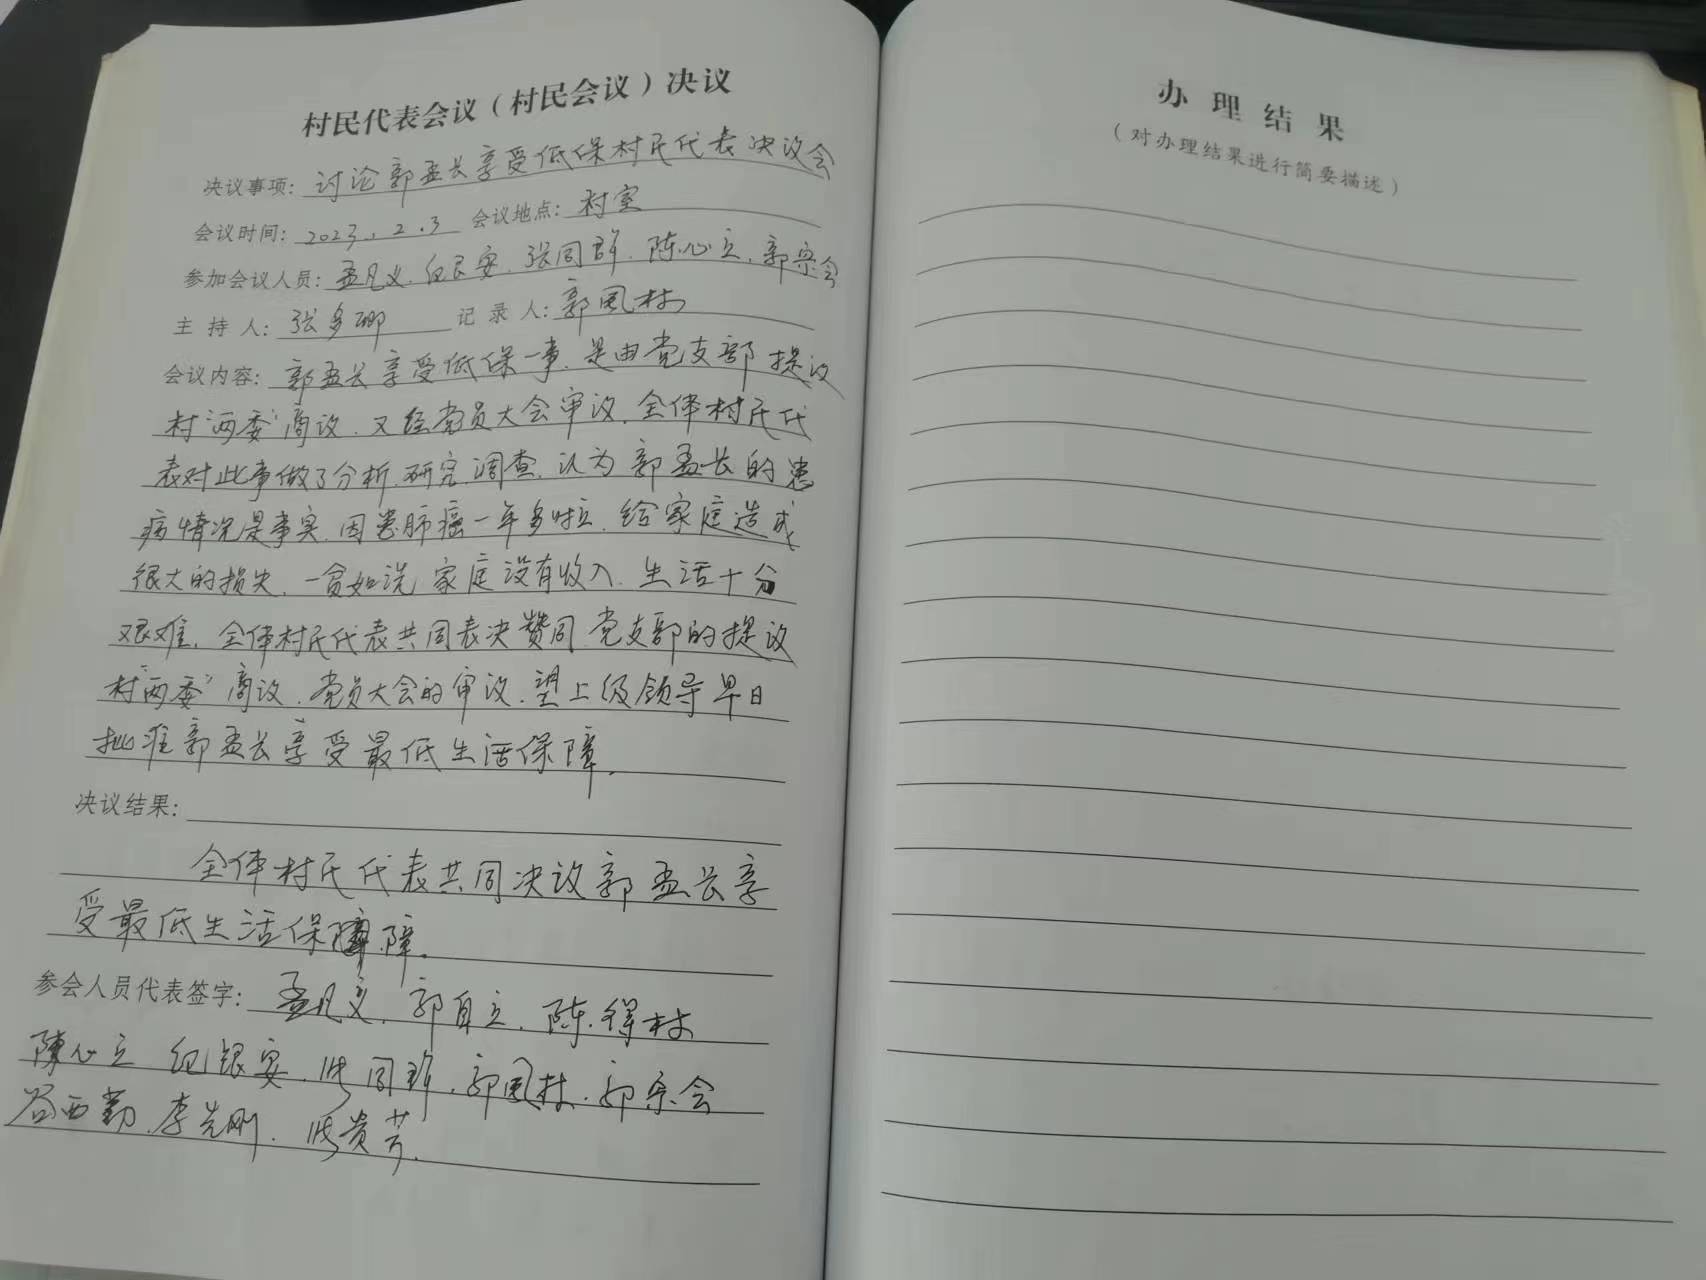 村民代表会议（村民会议）决议
决议事项：讨论郭孟长享受低保村民代表决议会
会议时间：2023.2.3 会议地点：村室
参加会议人员：孟凡义.纪银安.张同群.陈心立.郭宗会
主持人：张多娜 记录人：郭凤林
会议内容：郭孟长享受低保一事.是由党支部提议
村“两委”商议.又经党员大会审议.全体村民代
表对此事做了分析.研究.调查.认为郭孟长的患
病情况是事实.因患肺癌一年多啦.给家庭造成
很大的损失.一贫如洗.家庭没有收入.生活十分
艰难.全体村民代表共同表决赞同党支部的提议
村“两委”商议.党员大会的审议.望上级领导早日
批准郭孟长享受最低生活保障.
决议结果：
全体村民代表共同决议郭孟长享
受最低生活保障.
参会人员代表签字：孟凡义.郭自立.陈得林
陳心立 纪银安.张同群.郭凤林.郭宗会
谷西勤.李先刚.张贵芳.
办理结果
（对办理结果进行简要描述）